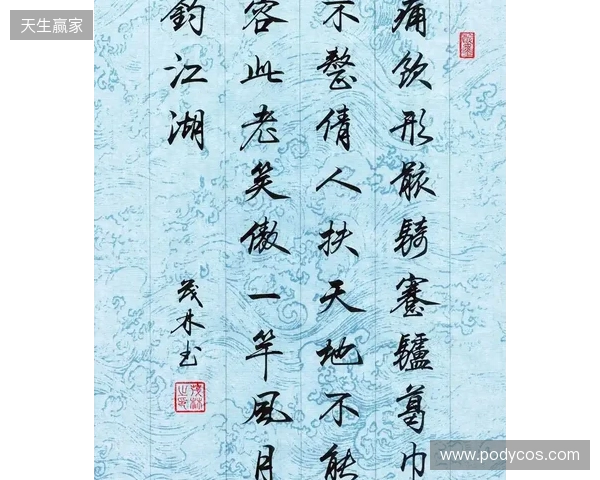 天生赢家
痛飲形骸騎蹇驢葛巾
不整倩人扶天地不能
容此老笑傲一竿風月
釣江湖
茂林书
www.podycos.com